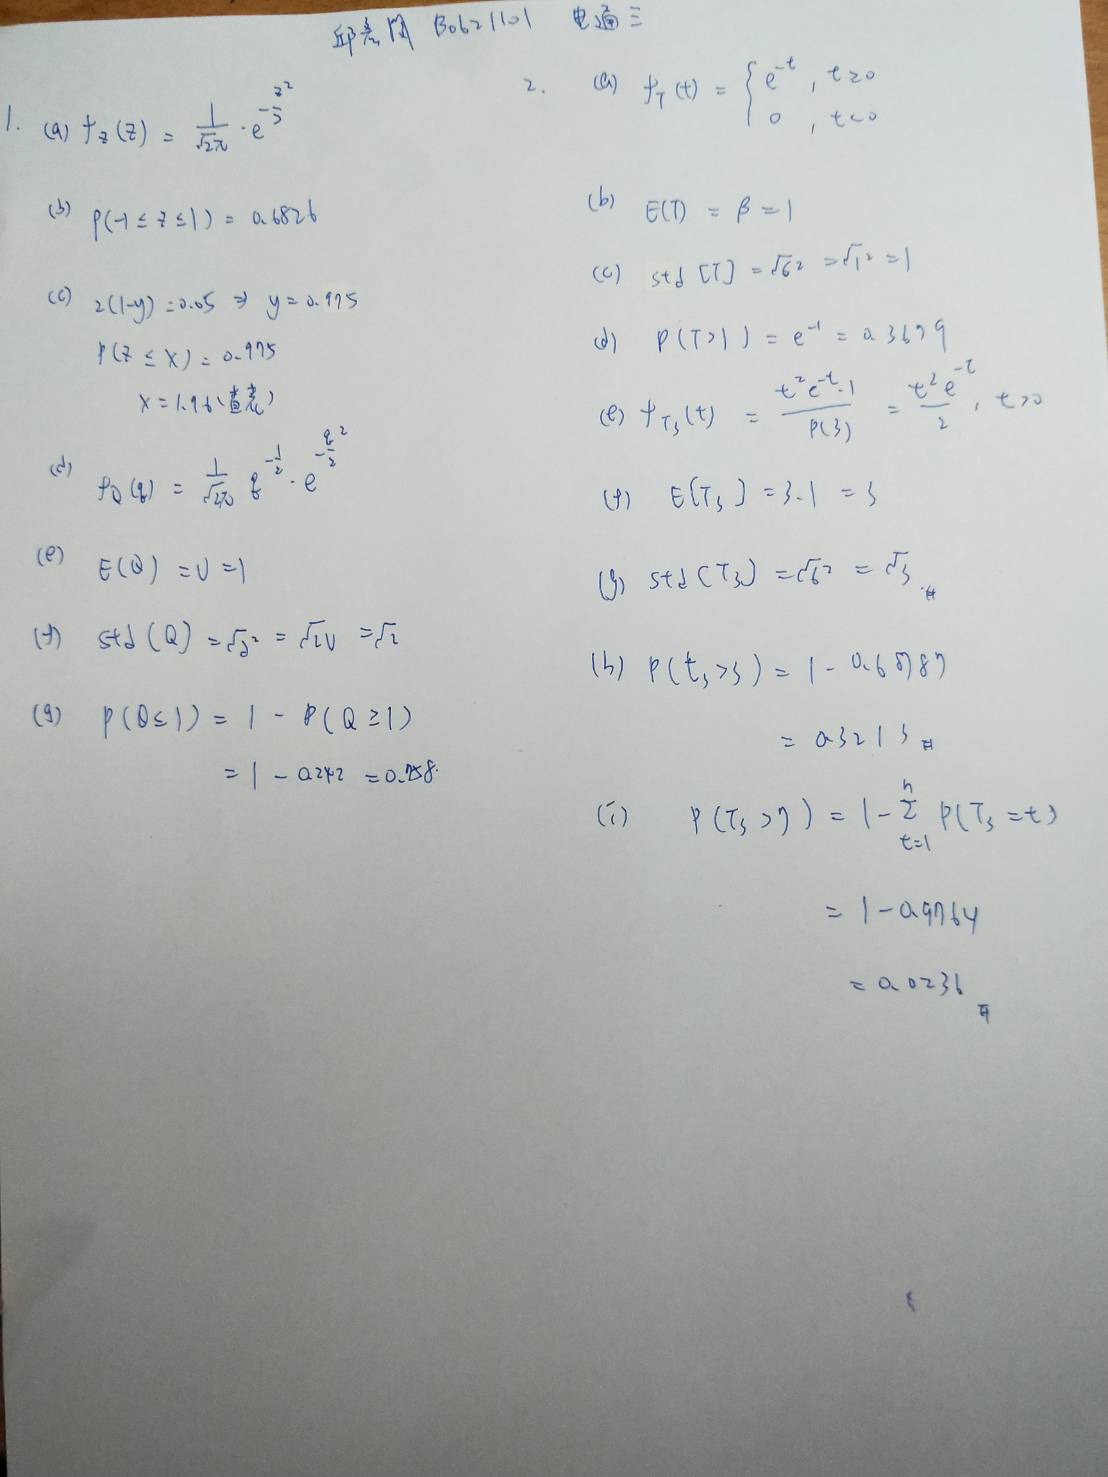 B0621101 電通三
1. (a) f_Z(z) = 1/√2π · e^(-z²/2)
(b) P(-1 ≤ z ≤ 1) = 0.6826
(c) 2(1-y) = 0.05 ⇒ y = 0.975
P(z ≤ x) = 0.975
x = 1.96 (查表)
(d) f_Q(q) = 1/√2π q^(-1/2) · e^(-q²/2)
(e) E(Q) = V = 1
(f) std(Q) = √σ² = √2V = √2
(g) P(Q ≤ 1) = 1 - P(Q ≥ 1)
= 1 - 0.242 = 0.758
2. (a) f_T(t) = { e^-t , t ≥ 0
0 , t < 0
(b) E(T) = β = 1
(c) std[T] = √σ² = √1² = 1
(d) P(T>1) = e^-1 = 0.3679
(e) f_T3(t) = t²e^-t·1 / Γ(3) = t²e^-t / 2 , t>0
(f) E[T3] = 3·1 = 3
(g) std(T3) = √σ² = √3 #
(h) P(t3>3) = 1 - 0.6787
= 0.3213 #
(i) P(T3>7) = 1 - Σ(t=1 to 7) P(T3=t)
= 1 - 0.9764
= 0.0236 #